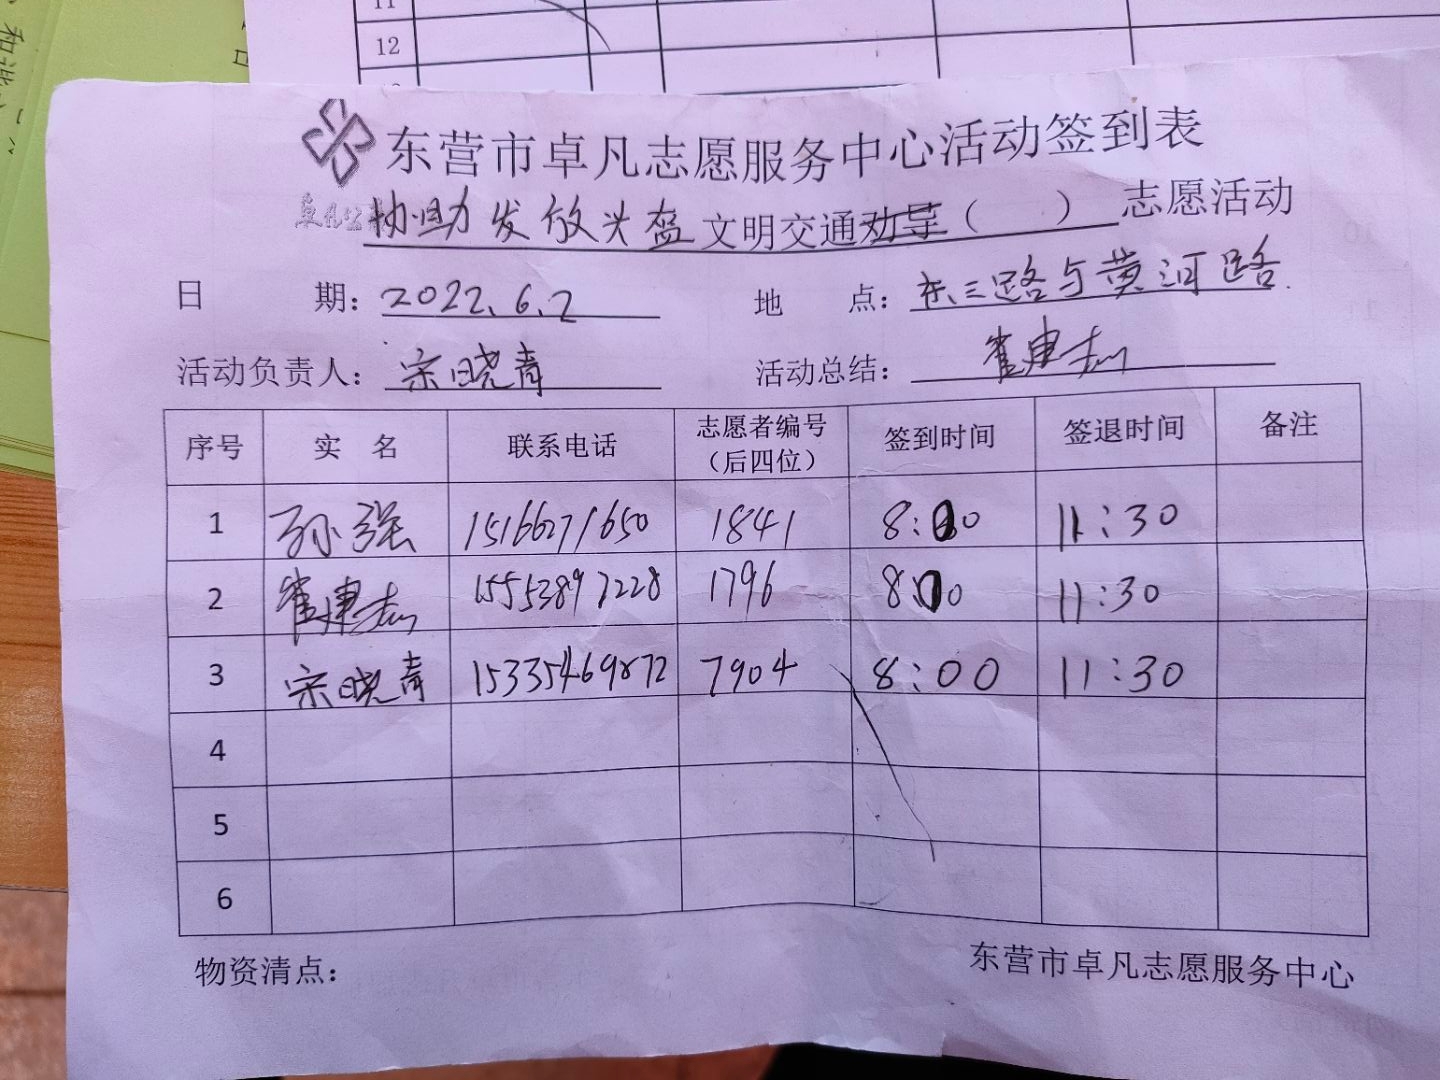 11
12
东营市卓凡志愿服务中心活动签到表
协助发放头盔文明交通劝导（ ）志愿活动
日 期：2022.6.2 地 点：东三路与黄河路
活动负责人：宋晓青 活动总结：崔建志
序号 实 名 联系电话 志愿者编号（后四位） 签到时间 签退时间 备注
1 孙强 15166271650 1841 8:00 11:30
2 崔建志 15553897228 1796 8:00 11:30
3 宋晓青 15335469872 7904 8:00 11:30
4
5
6
物资清点： 东营市卓凡志愿服务中心